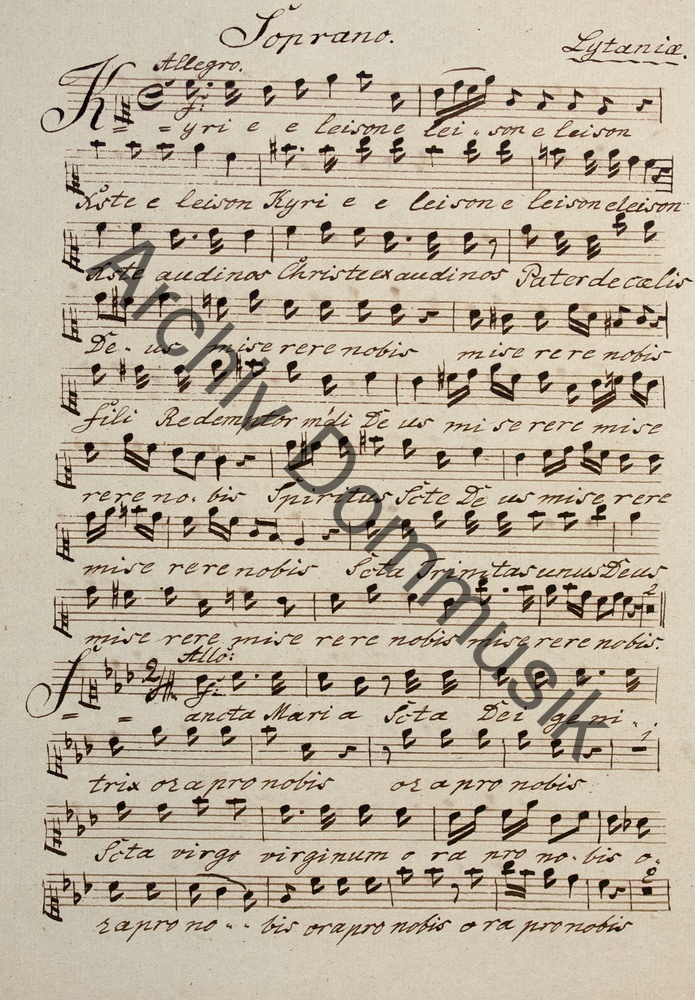 Soprano.
Lytaniæ.
Allegro.
Kyri e e leison e lei - son e leison
Xste e leison Kyri e e leison e leison eleison
Xste audi nos Christe exaudi nos Pater de cœlis
De - us mise rere nobis mise re re nobis
fili Redemptor mūdi De us mi se rere mise
rere no - bis Spiritus Scte De us mise rere
mise re re nobis Scta Trinitas unus Deus
mise rere mise re re nobis mise re re nobis.
2
Allo:
Sancta Mari a Scta Dei ge ni -
1
trix ora pro nobis ora pro nobis
Scta virgo virginum o ra pro no - bis o -
ra pro no - - bis ora pro nobis o ra pro nobis
Archiv Dommusik